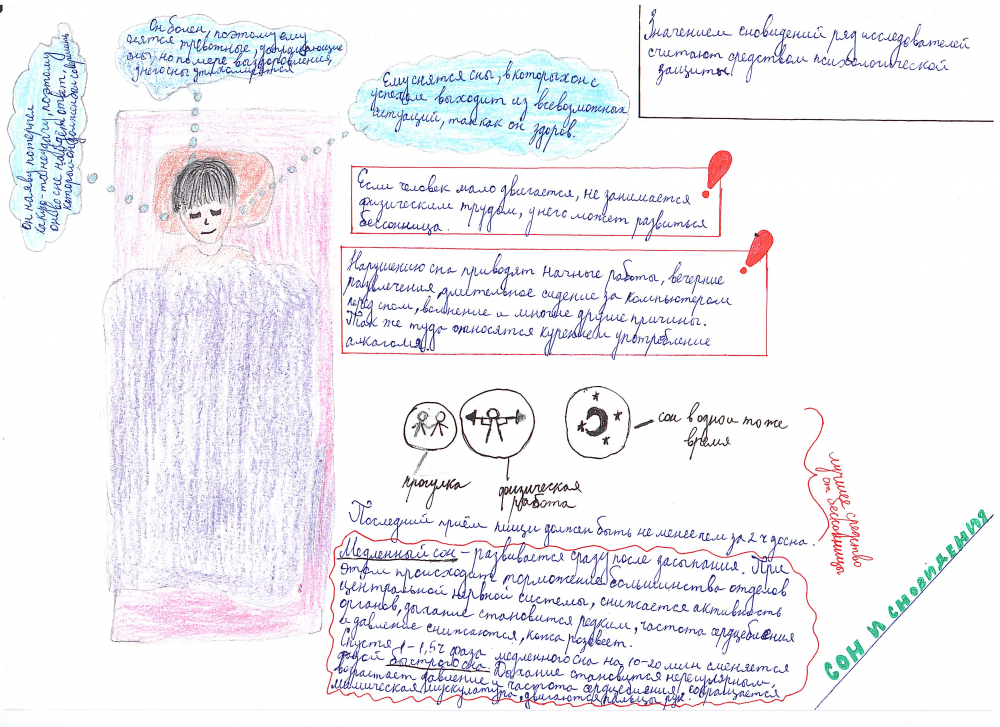 Он болен, поэтому ему
снятся тревожные, устрашающие
сны, но по мере выздоровления
у него сны утихомирятся
Он наяву потерпел
какую-то неудачу, поэтому
он во сне найдёт ответ,
который он должен был совершить
Ему снятся сны, в которых он с
успехом выходит из всевозможных
ситуаций, так как он здоров.
Значением сновидений ряд исследователей
считают средством психологической
защиты
Если человек мало двигается, не занимается
физическим трудом, у него может развиться
бессонница.
Нарушению сна приводят начные работы, вечерние
развлечения, длительное сидение за компьютером
перед сном, волнение и многие другие причины.
Так же туда относятся курение и употребление
алкаголя.
прогулка
физическая
работа
сон в одно и то же
время
лучшее средство
от бессонницы
Последний приём пищи должен быть не менее чем за 2 ч до сна.
Медленный сон – развивается сразу после засыпания. При
этом происходит торможение большинства отделов
центральной нервной системы, снижается активность
органов, дыхание становится редким, частота сердцебиения
и давление снижаются, кожа розовеет.
Спустя 1-1,5ч фаза медленного сна на 10-20 мин сменяется
фазой быстрого сна. Дыхание становится нерегулярным,
возрастает давление и частота сердцебиения, сокращается
мимическая мускулатура, двигаются пальцы рук.
СОН И СНОВИДЕНИЯ